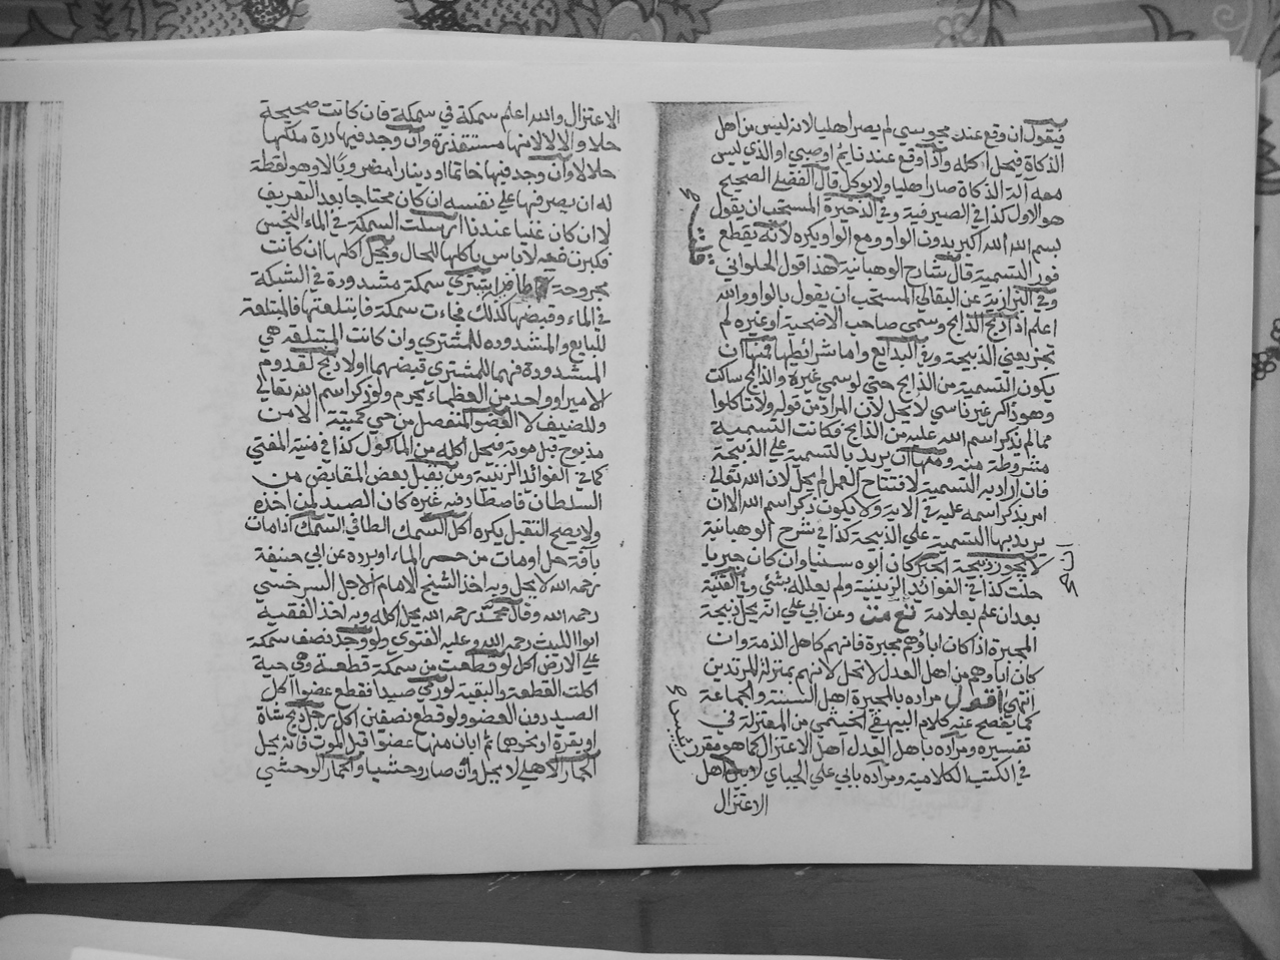 فيقول ان وقع عند مجوسي لم يصر اهليا لانه ليس من اهل
الذكاة فيحل اكله واذا وقع عند نايم او صبي او الذي ليس
معه آلة الذكاة صار اهليا ولا يوكل قال الفقيلي الصحيح
هو الاول كذا في الصيرفية وفي الذخيرة المستحب ان يقول
بسم الله الله اكبر بدون الواو ومع الواو يكره لانه يقطع
فور التسمية قال شارح الوهبانية هذا قول الحلواني
وفي البزازية عن البقالي المستحب ان يقول بالواو والله
اعلم اذا ذبح الذابح وسمي صاحب الاضحية او غيره لم
تجز يعني الذبيحة وفي البدايع واما شرائطها فمنها ان
يكون التسمية من الذابح حتي لو سمي غيره والذابح ساكت
وهو ذاكر غير ناسي لا يحل لان المراد من قوله ولا تاكلوا
مما لم يذكر اسم الله عليه من الذابح فكانت التسمية
مشروطة منه ومنها ان يريد بالتسمية علي الذبيحة
فان اراد به التسمية لافتتاح العمل لم يحل لان الله تعالي
امر بذكر اسمه عليه في الاية ولا يكون ذكر اسم الله الا ان
يريد بها التسمية علي الذبيحة كذا في شرح الوهبانية
لا يجوز ذبيحة الجبري كان ابوه سنيا وان كان جبريا
حلت كذا في الفوائد الزينية ولم يعلله بشئ وفي القنية
بعد ان علم بعلامة وعن ابي علي انه يحل ذبيحة
المجبرة اذا كان اباؤهم مجبرة فانهم كاهل الذمة وان
كان اباوهم من اهل العدل لا تحل لانهم بمنزلة المرتدين
انتهي اقول مراده بالمجبرة اهل السنة والجماعة
كما يفصح عنه كلام البيهقي الخيثمي من المعتزلة في
تفسيره ومراده باهل العدل اهل الاعتزال كما هو مقرر
في الكتب الكلامية ومراده بابي علي الجباي اهل
الاعتزال
الاعتزال والله اعلم سمكة في سمكة فان كانت صحيحة
حلا والا لا لانها مستقذرة وان وجد فيها درة ملكها
حلالا وان وجد فيها خاتما او دينارا مضروبا لا وهو لقطة
له ان يصرفها علي نفسه ان كان محتاجا بعد التعريف
لا ان كان غنيا عندنا ارسلت السمكة في الماء النجس
فكبرت فيه لا باس باكلها للحال ويحل اكلها ان كانت
مجروحة طافيا اشتري سمكة مشدودة في الشبكة
في الماء وقبضها كذلك فجاءت سمكة فابتلعتها فالمبتلعة
للبايع والمشدوده للمشتري وان كانت المبتلعة هي
المشدودة فهما للمشتري قبضهما اولا ذبح لقدوم
الامير او واحد من العظماء يحرم ولو ذكر اسم الله تعالي
وللضيف لا العضو المنفصل من حي كميتة الا من
مذبوح قبل موته فيحل اكله من الماكول كذا في منية المفتي
كما في الفوائد الزينية ومن تقبل بعض المقابض من
السلطان فاصطاد فيه غيره كان الصيد لمن اخذه
ولا يصح التقبل يكره اكل السمك الطافي السمك اذا مات
بآفة حل او مات من حر الماء او برده عن ابي حنيفة
رحمه الله لا يحل وبه اخذ الشيخ الامام الاجل السرخسي
رحمه الله وقال محمد رحمه الله يحل اكله وبه اخذ الفقيه
ابوا الليث رحمه الله وعليه الفتوي ولو وجد نصف سمكة
علي الارض اكل لو قطعت من سمكة قطعة وهي حية
اكلت القطعة والبقية لو رمي صيدا فقطع عضوا اكل
الصيد دون العضو ولو قطع نصفين اكل رجل ذبح شاة
او بقرة او نحوهما ثم ابان منها عضوا قبل الموت فانه يحل
الحمار الاهلي لا يحل وان صار وحشيا والحمار الوحشي